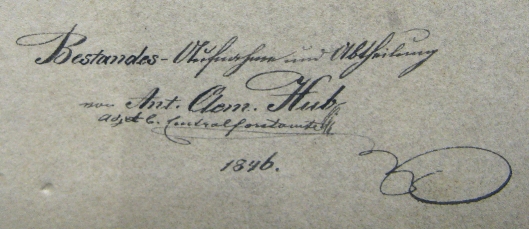 Bestandes-Aufnahme und Abtheilung
von Ant. Clem. Hub
Adjkt b. Centralforstamte
1846.